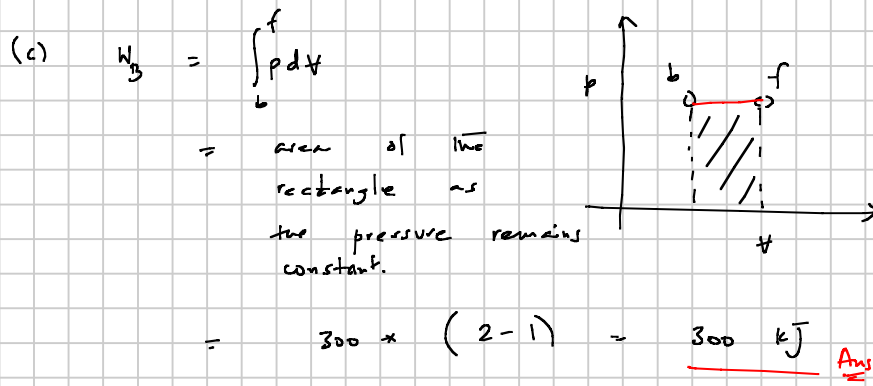 (c) W_B = ∫_b^f p d V
= area of the
rectangle as
the pressure remains
constant.
= 300 * (2-1) = 300 kJ Ans
p b f
V